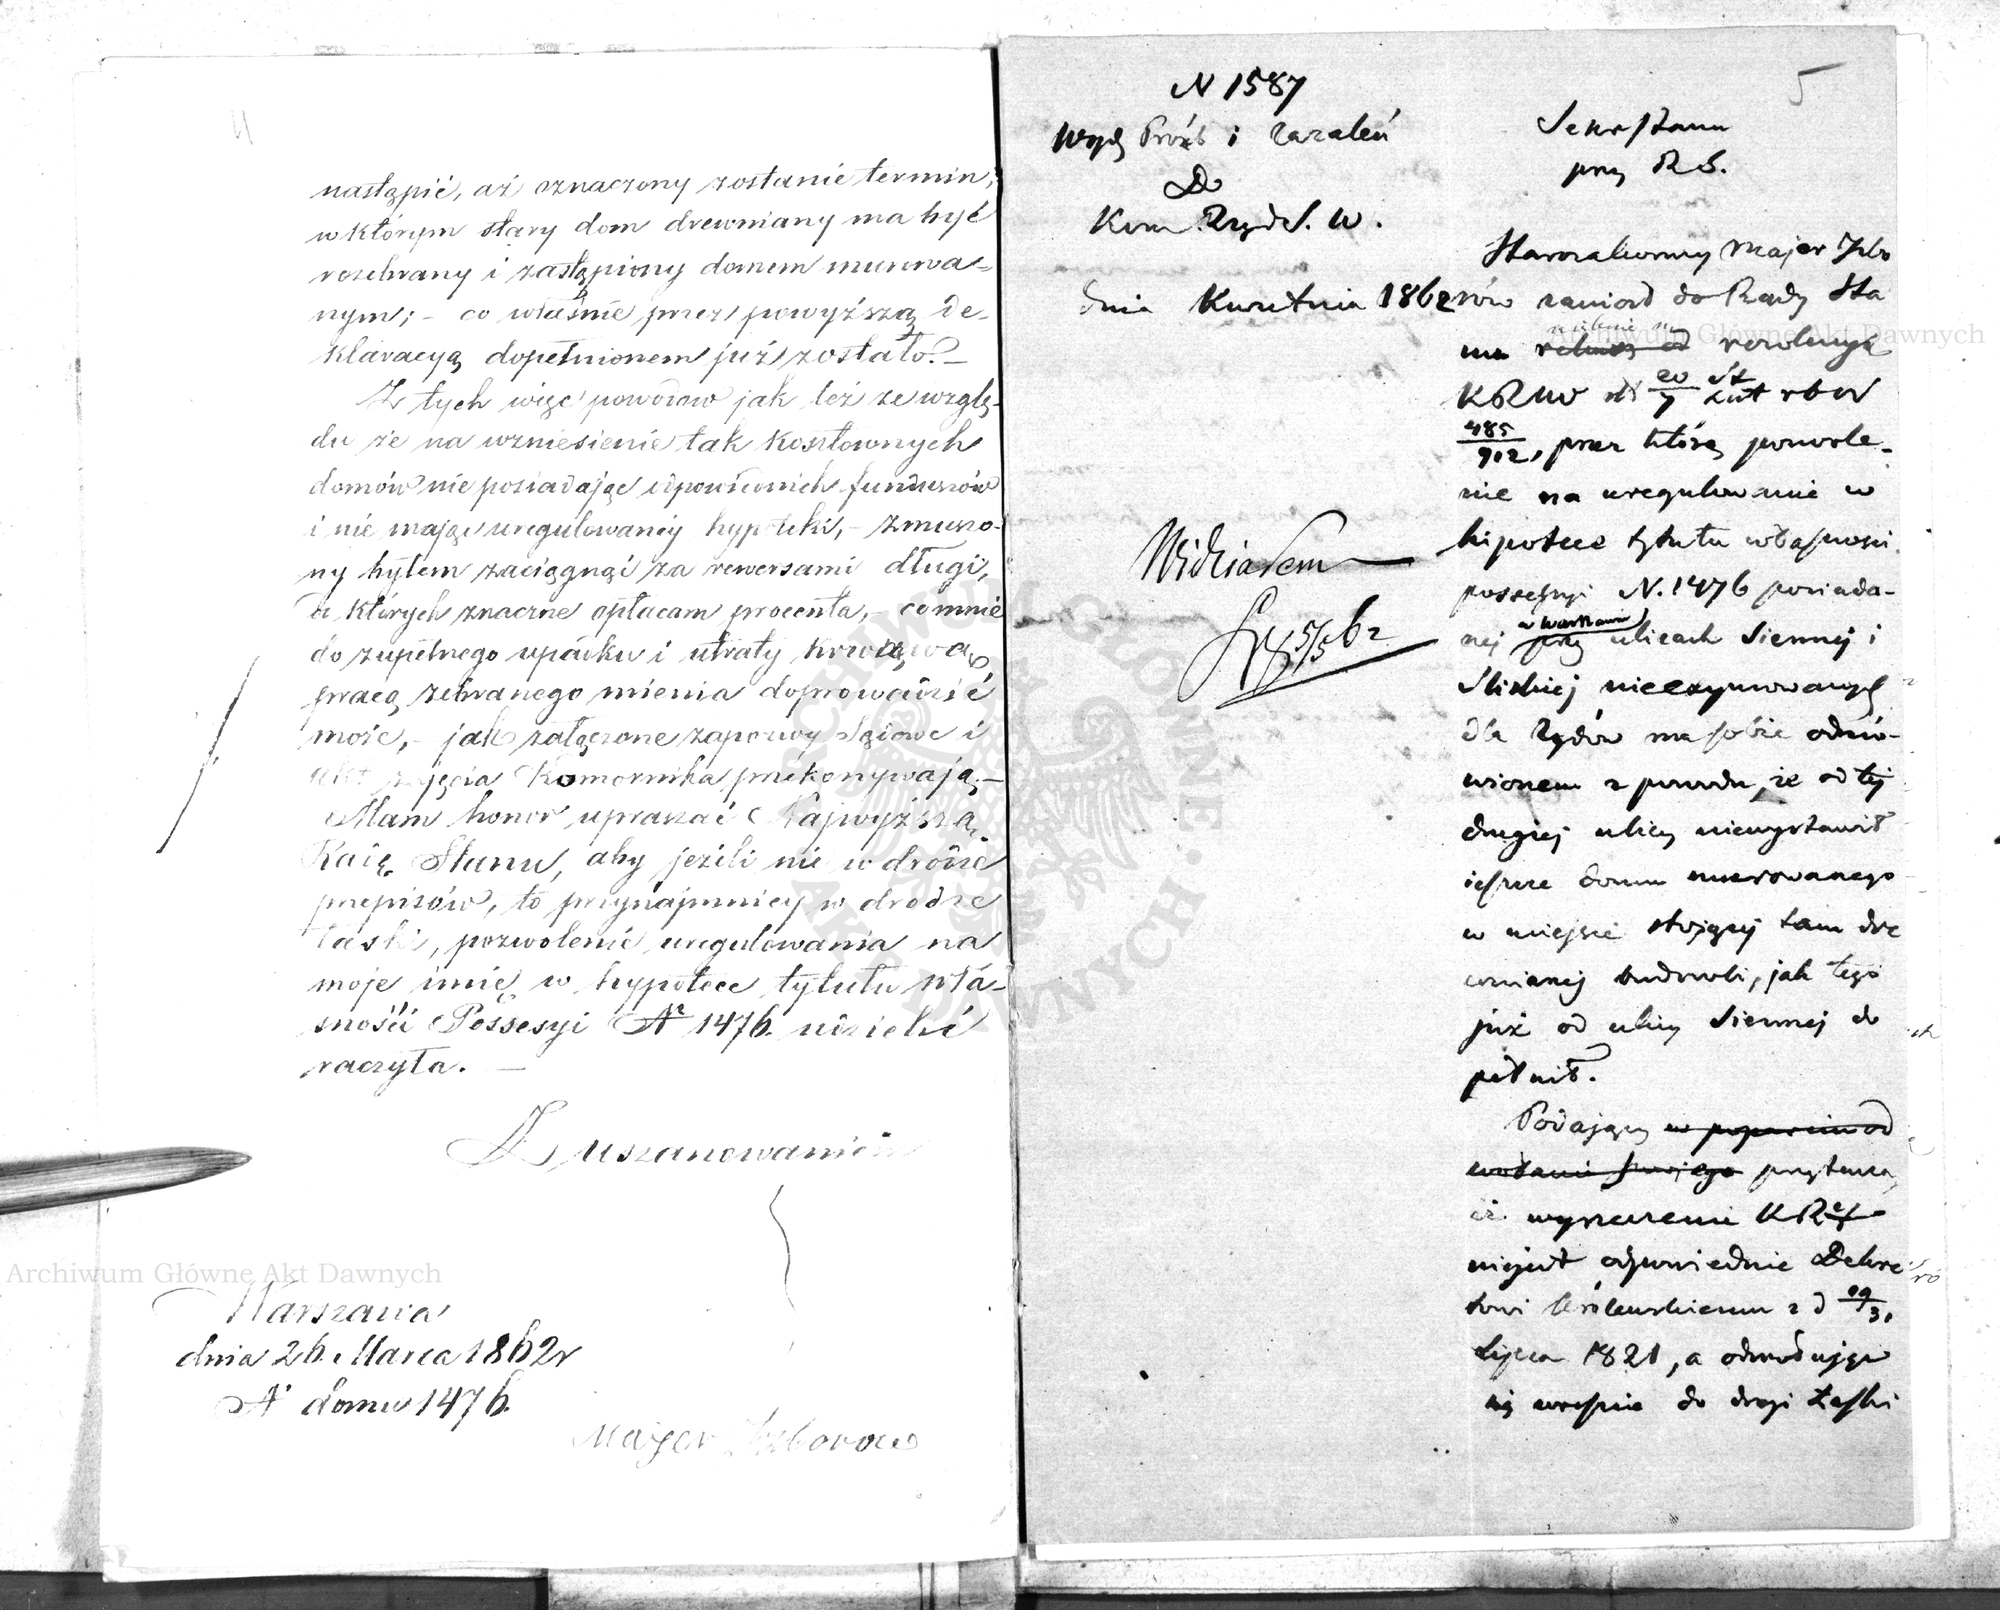 4
nastąpić, aż oznaczony zostanie termin,
w którym stary dom drewniany ma być
rozebrany i zastąpiony domem murowa-
nym; - co właśnie przez powyższą de-
klaracyą dopełnionem już zostało. -
Z tych więc powodów jak też ze wzglę-
du że na wzniesienie tak kosztownych
domów nie posiadając odpowiednich funduszów
i nie mając uregulowanéj hypoteki, - zmuszo-
ny byłem zaciągnąć za rewersami długi,
od których znaczne opłacam procenta, - co mnie
do zupełnego upadku i utraty krwawą
pracą zebranego mienia doprowadzić
może, - jak załączone zapozwy Sądowe i
akt zajęcia Komornika przekonywają. -
Mam honor upraszać Najwyższą
Radę Stanu, aby jeżeli nie w drodze
przepisów, to przynajmniéj w drodze
łaski, pozwolenie uregulowania na
moje imię w hypotece tytułu wła-
sności Possesyi № 1476. udzielić
raczyła. -
Z uszanowaniem
Warszawa
dnia 26. Marca 1862 r
№ domu 1476.
Majer Izborow
5
N 1587
Wydz Próśb i Zażaleń
Do
Kom. Rząd. S. W.
dnia Kwietnia 1862
Widziałem
5/5 62
Sekr Stanu
przy RS.
Starozakonny Majer Izbo
rów zaniósł do Rady Sta
nu rezolucyą
KRSW dd 20/7 Lut rb N
485/912, przez którą pozwole-
nie na uregulowanie w
hipotece tytułu własności
possessyi N. 1476 posiada-
nej w Warszawie przy ulicach Siennej i
Śliskiej nieexymowanych
dla Żydów ma sobie odmó-
wionem z powodu, że od tej
drugiej ulicy niewystawił
jeszcze domu murowanego
w miejsce stojącej tam dre
wnianej budowli, jak tego
już od ulicy Siennej do
pełnił.
Podający w poparciu od
wołania swojego przytacza,
iż wyrzeczenie KR
niejest odpowiednie Dekre
towi Królewskiemu z d 19/31
Lipca 1821, a odwołując
się wreszcie do drogi łaski
Archiwum Główne Akt Dawnych
Archiwum Główne Akt Dawnych
ARCHIWUM GŁÓWNE AKT DAWNYCH